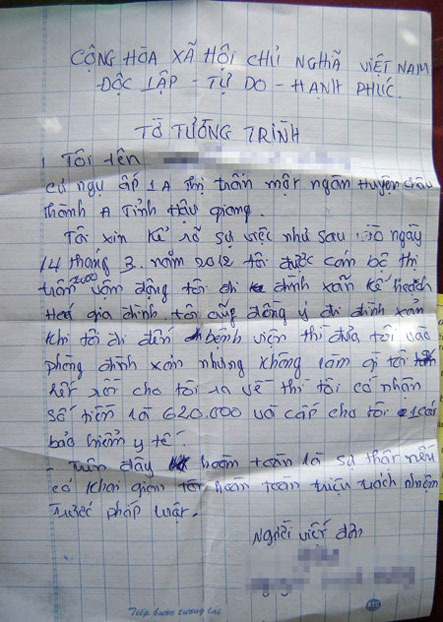 CỘNG HÒA XÃ HỘI CHỦ NGHĨA VIỆT NAM
ĐỘC LẬP - TỰ DO - HẠNH PHÚC.
TỜ TƯỜNG TRÌNH
Tôi tên
cư ngụ ấp 1A thị trấn một ngàn Huyện châu
thành A Tỉnh Hậu giang.
Tôi xin kể rõ sự việc như sau: ngày
14 tháng 3 năm 2012 tôi được cán bộ thị
trấn vận động tôi đi đình xản kế hoạch
Hoá gia đình. tôi cũng đồng ý đi đình xản
khi tôi đi đến bệnh viện thì đưa tôi vào
phòng đình xản nhưng không làm gì tôi
hết rồi cho tôi ra về thì tôi có nhận
số tiền là 620.000 và cấp cho tôi 1 cái
bảo hiểm y tế.
- trên đây hoàn toàn là sự thật nếu
có khai gian tôi hoàn toàn triệu trách nhiệm
trước pháp luật.
Người viết đơn
Tiếp bước tương lai